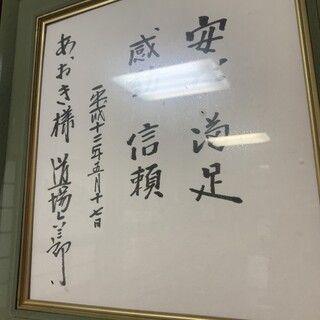 安心 満足
感動 信頼
平成十三年五月十七日
あおき様 道場六三郎